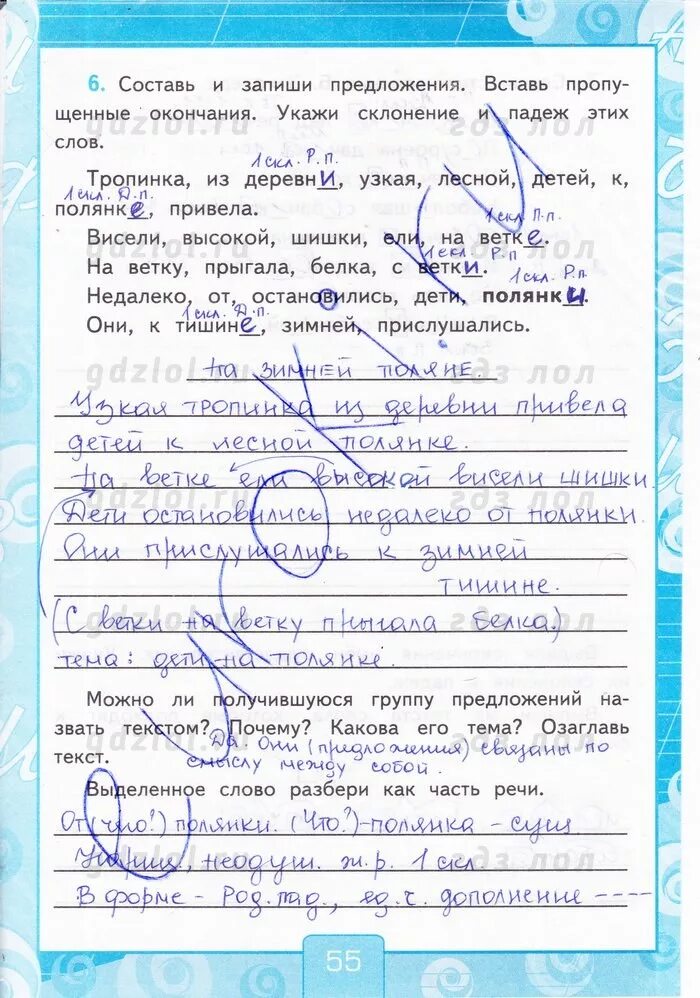 6. Составь и запиши предложения. Вставь пропу-
щенные окончания. Укажи склонение и падеж этих
слов.
1 скл. Р.п.
Тропинка, из деревни, узкая, лесной, детей, к,
1 скл. Д.п.
полянке, привела.
1 скл. П.п.
Висели, высокой, шишки, ели, на ветке.
1 скл. Р.п.
На ветку, прыгала, белка, с ветки.
1 скл. Р.п.
Недалеко, от, остановились, дети, полянки.
1 скл. Д.п.
Они, к тишине, зимней, прислушались.
На зимней поляне.
Узкая тропинка из деревни привела
детей к лесной полянке.
На ветке ели высокой висели шишки.
Дети остановились недалеко от полянки.
Они прислушались к зимней
тишине.
(С ветки на ветку прыгала белка.)
тема: дети на полянке.
Можно ли получившуюся группу предложений на-
звать текстом? Почему? Какова его тема? Озаглавь
текст.
Да. Они (предложения) связаны по
смыслу между собой.
Выделенное слово разбери как часть речи.
От (чего?) полянки. (Что?) - полянка - сущ
Нариц, неодуш. ж.р. 1 скл.
В форме - Род. пад., ед.ч. дополнение ----
55
gdzlol.ru
гдз лол